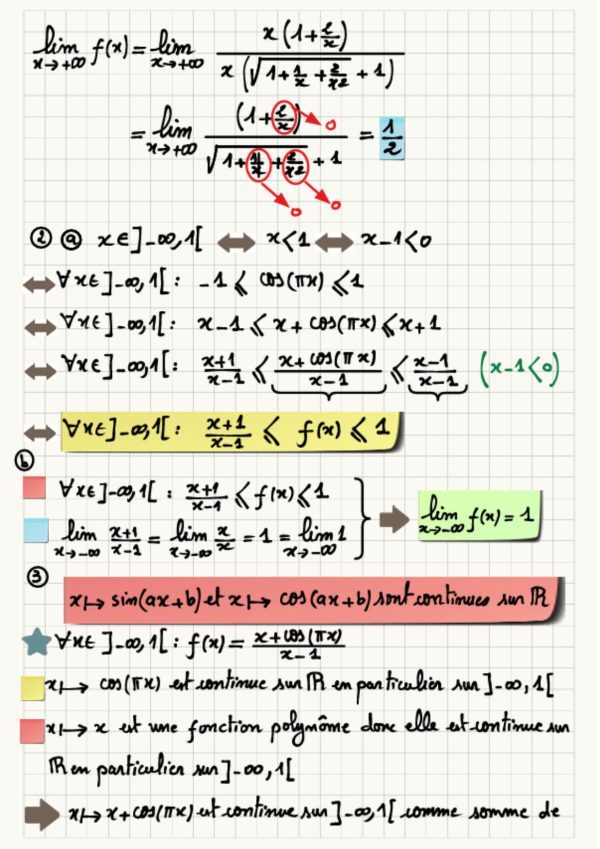 lim x→+∞ f(x) = lim x→+∞ x(1+2/x) / x(√(1+1/x+2/x²)+1)
= lim x→+∞ (1+2/x) / √(1+1/x+2/x²)+1 = 1/2
0
0 0
② ⓐ x∈]-∞,1[ ⟺ x<1 ⟺ x-1<0
⟺ ∀x∈]-∞,1[ : -1 ⩽ cos(πx) ⩽ 1
⟺ ∀x∈]-∞,1[ : x-1 ⩽ x+cos(πx) ⩽ x+1
⟺ ∀x∈]-∞,1[ : (x+1)/(x-1) ⩽ (x+cos(πx))/(x-1) ⩽ (x-1)/(x-1) (x-1<0)
⟺ ∀x∈]-∞,1[ : (x+1)/(x-1) ⩽ f(x) ⩽ 1
ⓑ
∀x∈]-∞,1[ : (x+1)/(x-1) ⩽ f(x) ⩽ 1
lim x→-∞ (x+1)/(x-1) = lim x→-∞ x/x = 1 = lim x→-∞ 1 ⇒ lim x→-∞ f(x) = 1
③
x↦ sin(ax+b) et x↦ cos(ax+b) sont continues sur ℝ
∀x∈]-∞,1[ : f(x) = (x+cos(πx))/(x-1)
x↦ cos(πx) est continue sur ℝ en particulier sur ]-∞,1[
x↦ x est une fonction polynôme donc elle est continue sur
ℝ en particulier sur ]-∞,1[
⇒ x↦ x+cos(πx) est continue sur ]-∞,1[ comme somme de